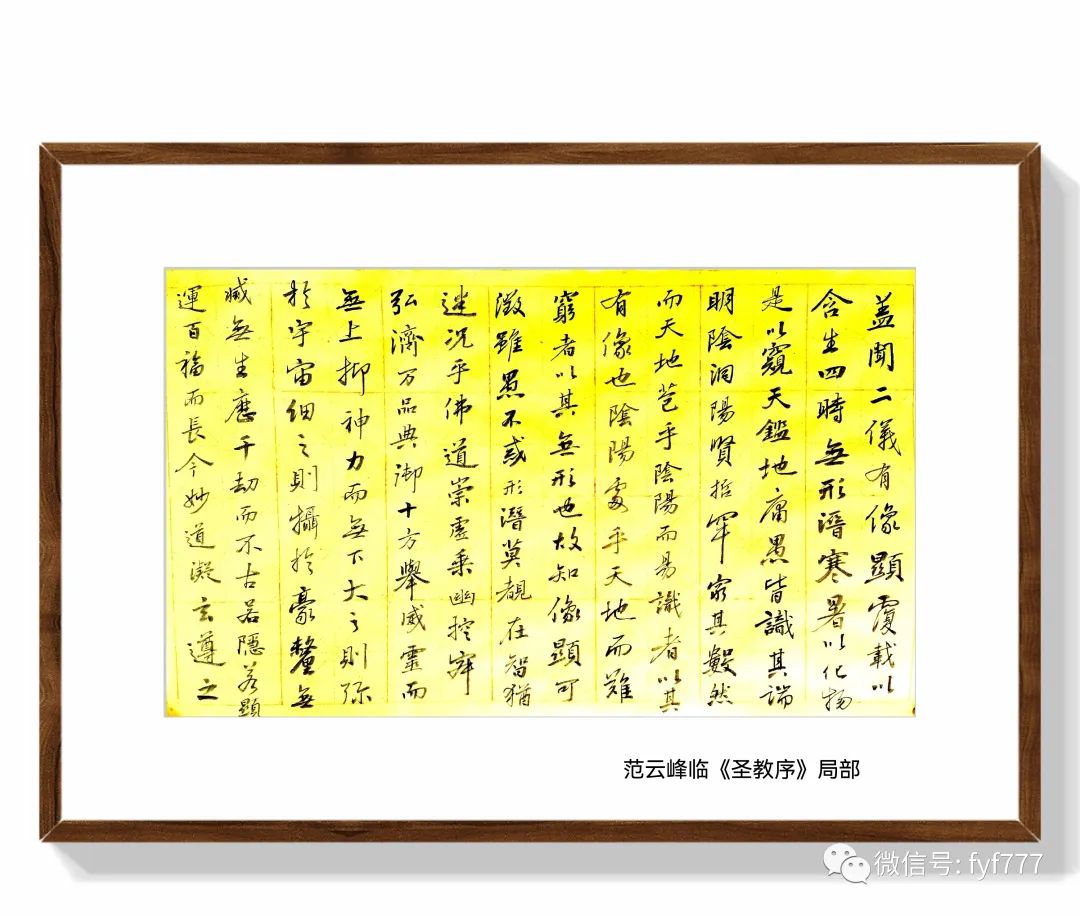 蓋聞二儀有像顯覆載以
含生四時無形潛寒暑以化物
是以窺天鑑地庸愚皆識其端
明陰洞陽賢哲罕窮其數然
而天地苞乎陰陽而易識者以其
有像也陰陽處乎天地而難
窮者以其無形也故知像顯可
徵雖愚不惑形潛莫覩在智猶
迷況乎佛道崇虛乘幽控寂
弘濟万品典御十方舉威靈而
無上抑神力而無下大之則弥
於宇宙細之則攝於豪釐無
滅無生歷千劫而不古若隱若顯
運百福而長今妙道凝玄遵之
范云峰临《圣教序》局部
微信号: fyf777